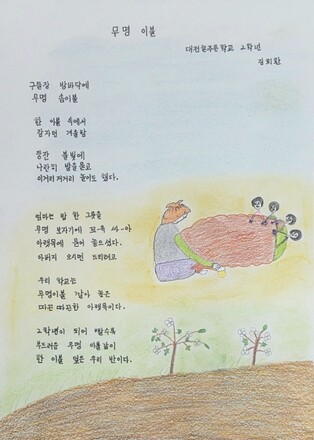 무명 이불
대전글꽃중학교 2학년
김희환
구들장 방바닥에
무명 솜이불
한 이불 속에서
잠자던 겨울밤
등잔 불빛에
나란히 발을 뻗고
이거리 저거리 놀이도 했다.
엄마는 밥 한 그릇을
무명 보자기에 꼬옥 싸아
아랫목에 묻어 놓으셨다.
아버지 오시면 드리려고
우리 학교는
무명이불 깔아 놓은
따끈 따끈한 아랫목이다.
2학년이 되어 갈수록
부드러운 무명 이불같이
한 이불 덮은 우리 반이다.